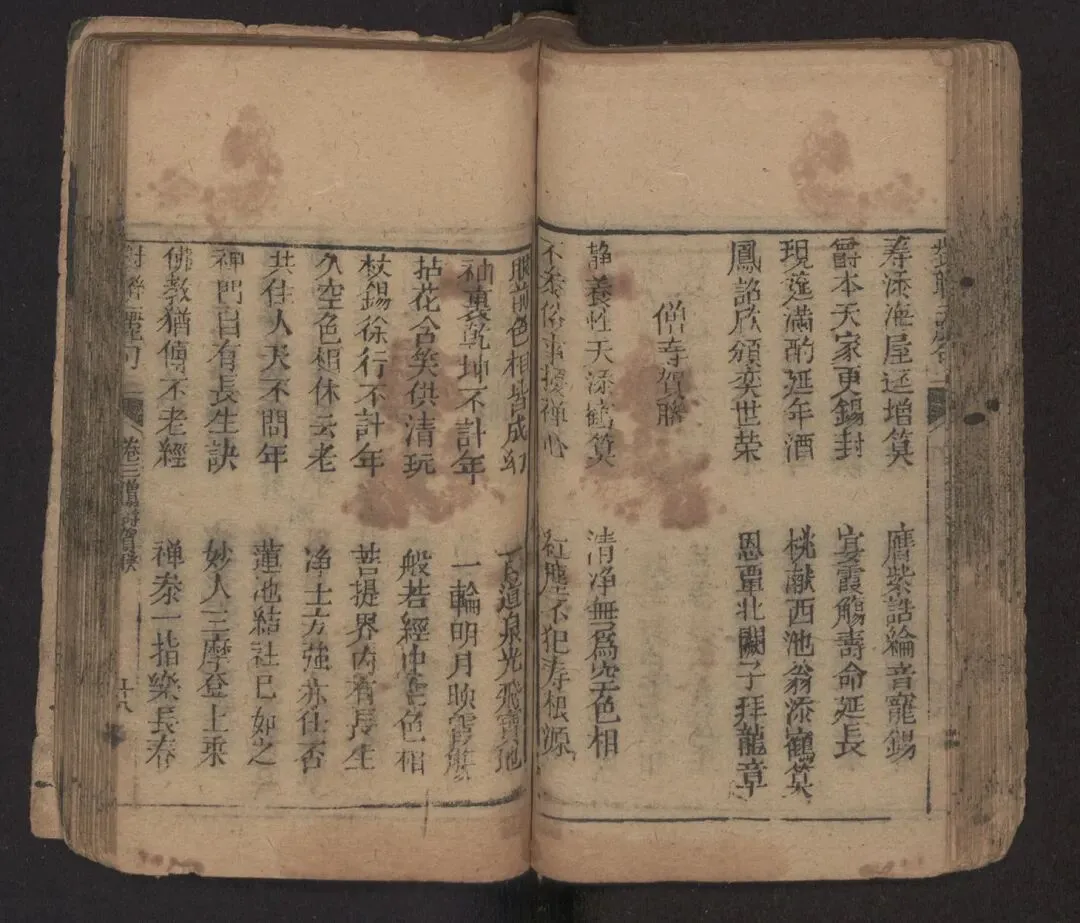 寿添海屋逐增筭　膺紫誥綸音寵錫
爵本天家更錫封　宴霞觴壽命延長
現筵滿酌延年酒　桃献西池翁添寉筭
鳳詔欣頒奕世荣　恩覃北闕子拜龍章
僧寺賀聯
静養性天添鶴筭　清净無爲空色相
不参俗事擾禅心　紅塵不犯寿根源
眼前色相皆成幻　百道泉光飛寶地
袖裏乾坤不計年　一輪明月映雲
拈花含笑供清玩　般若經中空色相
杖錫徐行不計年　菩提界内有長生
久空色相休云老　净土方強亦仕否
共住人天不問年　蓮池結社已如之
禅門自有長生訣　妙人三摩登上乘
佛教猶傳不老經　禅参一指樂長春
對聯麗句　卷三僧寺賀聯　十八